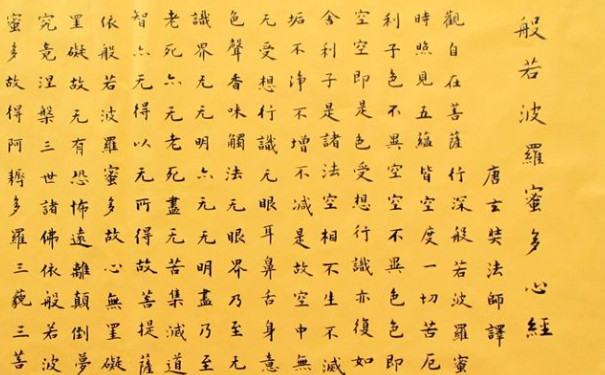 般若波羅蜜多心經
唐玄奘法師譯
觀自在菩薩行深般若波羅蜜
時照見五蘊皆空度一切苦厄
利子色不異空空不異色色即
空空即是色受想行識亦復如
舍利子是諸法空相不生不滅
垢不淨不增不減是故空中無
无受想行識无眼耳鼻舌身意
色聲香味觸法无眼界乃至无
識界无无明亦无无明盡乃至
老死亦无老死盡无苦集滅道
智亦无得以无所得故菩提薩
依般若波羅蜜多故心無罣礙
罣礙故无有恐怖遠離顛倒夢
究竟涅槃三世諸佛依般若波
蜜多故得阿耨多羅三藐三菩